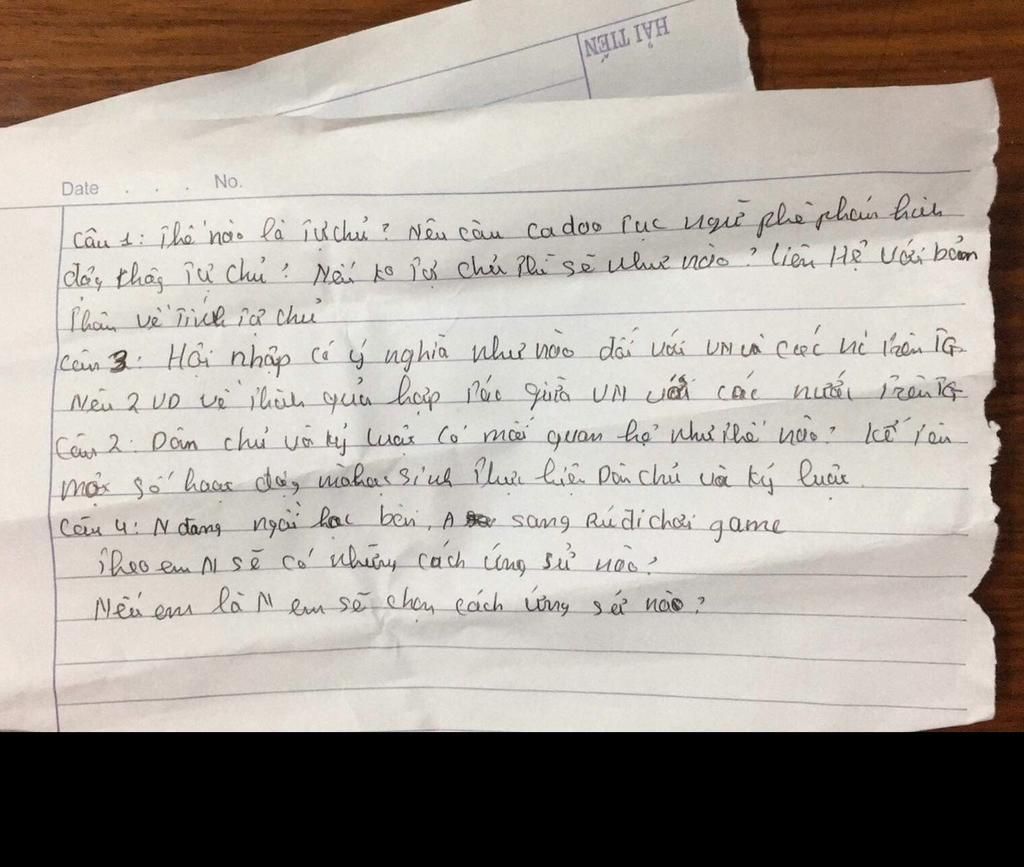 HẢI TIẾN
Date . . . No.
Câu 1: Thế nào là Tự chủ? Nêu câu ca dao tục ngữ phê phán hành
động không Tự chủ? Nếu ko Tự chủ thì sẽ như nào? liên Hệ với bản
thân về Tính Tự chủ
Câu 3: Hội nhập có ý nghĩa như nào đối với VN và các nc trên TG
Nêu 2 VD về thành quả hợp tác giữa VN với các nước trên TG
Câu 2: Dân chủ và kỷ luật có mối quan hệ như thế nào? kể tên
một số hoạt động mà học sinh thực hiện Dân chủ và kỷ luật.
Câu 4: N đang ngồi học bài, A sang Rủ đi chơi game
Theo em N sẽ có những cách ứng sử nào?
Nếu em là N em sẽ chọn cách ứng sử nào?